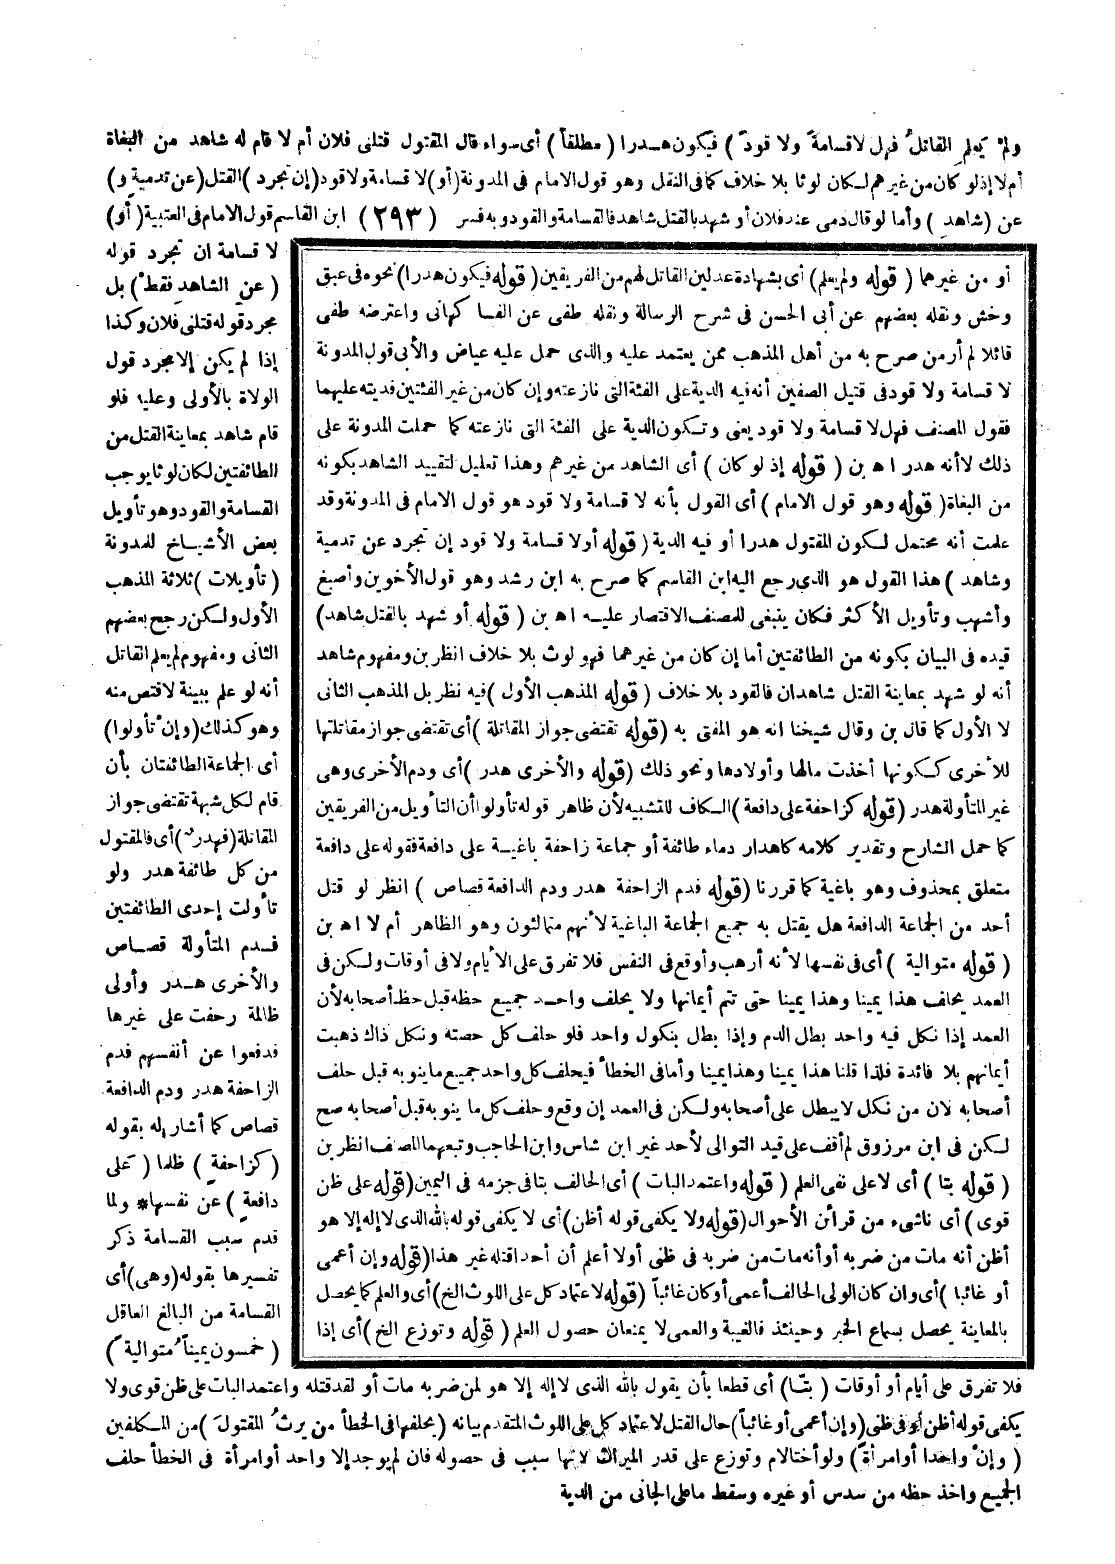 ولم يعلم القاتل فهل لا قسامة ولا قود ) فيكون هدرا ( مطلقاً ) أى سواء قال المقتول قتلنى فلان أم لا قام له شاهد من البغاة
أم لا إذ لو كان من غيرهم لكان لوثا بلا خلاف كما فى النقل وهو قول الامام فى المدونة (أو) لا قسامة ولا قود (إن تجرد ) القتل (عن تدمية و)
عن (شاهد ) وأما لو قال دمى عند فلان أو شهد بالقتل شاهد فالقسامة والقود وبه فسر ( ٢٩٣ ) ابن القاسم قول الامام فى العتبية (أو)
لا قسامة ان تجرد قوله
( عن الشاهد فقط ) بل
مجرد قوله قتلنى فلان وكذا
إذا لم يكن إلا مجرد قول
الولاة بالأولى وعليه فلو
قام شاهد بمعاينة القتل من
الطائفتين لكان لوثا يوجب
القسامة والقود وهو تأويل
بعض الأشياخ للمدونة
( تأويلات ) ثلاثة المذهب
الأول ولكن رجح بعضهم
الثانى ومفهوم لم يعلم القاتل
أنه لو علم ببينة لاقتص منه
وهو كذلك (وإن تأولوا)
أى الجماعة الطائفتان بأن
قام لكل شبهة تقتضى جواز
المقاتلة (فهدر) أى فالمقتول
من كل طائفة هدر ولو
تأولت إحدى الطائفتين
فدم المتأولة قصاص
والأخرى هدر وأولى
ظالمة زحفت على غيرها
فدفعوا عن أنفسهم فدم
الزاحفة هدر ودم الدافعة
قصاص كما أشار له بقوله
( كزاحفة ) ظلما ( على
دافعة ) عن نفسها* ولما
قدم سبب القسامة ذكر
تفسيرها بقوله (وهى) أى
القسامة من البالغ العاقل
( خمسون يمينا متوالية )
أو من غيرهما ( قوله ولم يعلم) أى بشهادة عدلين القاتل لهم من الفريقين (قوله فيكون هدرا) نحوه فى عبق
وخش ونقله بعضهم عن أبى الحسن فى شرح الرسالة ونقله طفى عن الفاكهانى واعترضه طفى
قائلا لم أر من صرح به من أهل المذهب ممن يعتمد عليه والذى حمل عليه عياض والأبى قول المدونة
لا قسامة ولا قود فى قتيل الصفين أنه فيه الدية على الفئة التى نازعته وإن كان من غير الفئتين فديته عليهما
فقول المصنف فهل لا قسامة ولا قود يعنى وتكون الدية على الفئة التى نازعته كما حملت المدونة على
ذلك لا أنه هدر اه بن ( قوله إذ لو كان ) أى الشاهد من غيرهم وهذا تعليل لتقييد الشاهد بكونه
من البغاة ( قوله وهو قول الامام ) أى القول بأنه لا قسامة ولا قود هو قول الامام فى المدونة وقد
علمت أنه محتمل لكون المقتول هدرا أو فيه الدية ( قوله أو لا قسامة ولا قود إن تجرد عن تدمية
وشاهد ) هذا القول هو الذى رجع اليه ابن القاسم كما صرح به ابن رشد وهو قول الأخوين وأصبغ
وأشهب وتأويل الأكثر فكان ينبغى للمصنف الاقتصار عليه اه بن ( قوله أو شهد بالقتل شاهد)
قيده فى البيان بكونه من الطائفتين أما إن كان من غيرهما فهو لوث بلا خلاف انظر بن ومفهوم شاهد
أنه لو شهد بمعاينة القتل شاهدان فالقود بلا خلاف ( قوله المذهب الأول ) فيه نظر بل المذهب الثانى
لا الأول كما قال بن وقال شيخنا انه هو المفتى به ( قوله تقتضى جواز المقاتلة ) أى تقتضى جواز مقاتلتها
للأخرى ككونها أخذت مالها وأولادها ونحو ذلك ( قوله والأخرى هدر ) أى ودم الأخرى وهى
غير المتأولة هدر (قوله كزاحفة على دافعة ) الكاف للتشبيه لأن ظاهر قوله تأولوا أن التأويل من الفريقين
كما حمل الشارح وتقدير كلامه كاهدار دماء طائفة أو جماعة زاحفة باغية على دافعة فقوله على دافعة
متعلق بمحذوف وهو باغية كما قررنا (قوله فدم الزاحفة هدر ودم الدافعة قصاص ) انظر لو قتل
أحد من الجماعة الدافعة هل يقتل به جميع الجماعة الباغية لأنهم متمالئون وهو الظاهر أم لا اه بن
( قوله متوالية ) أى فى نفسها لأنه أرهب وأوقع فى النفس فلا تفرق على الأيام ولا فى أوقات ولكن فى
العمد يحلف هذا يمينا وهذا يمينا حتى تتم أيمانها ولا يحلف واحد جميع حظه قبل حظ أصحابه لأن
العمد إذا نكل فيه واحد بطل الدم وإذا بطل بنكول واحد فلو حلف كل حصته ونكل ذاك ذهبت
أيمانهم بلا فائدة فلذا قلنا هذا يمينا وهذا يمينا وأما فى الخطأ فيحلف كل واحد جميع ما ينوبه قبل حلف
أصحابه لان من نكل لا يبطل على أصحابه ولكن فى العمد إن وقع وحلف كل ما ينوبه قبل أصحابه صح
لكن فى ابن مرزوق لم أقف على قيد التوالى لأحد غير ابن شاس وابن الحاجب وتبعهما المصنف انظر بن
( قوله بتا ) أى لا على نفى العلم ( قوله واعتمد البات ) أى الحالف بتا فى جزمه فى اليمين (قوله على ظن
قوى ) أى ناشىء من قرائن الأحوال (قوله ولا يكفى قوله أظن) أى لا يكفى قوله بالله الذى لا إله إلا هو
أظن أنه مات من ضربه أو أنه مات من ضربه فى ظنى أو لا أعلم أن أحدا قتله غير هذا (قوله وإن أعمى
أو غائبا ) أى وان كان الولى الحالف أعمى أو كان غائباً (قوله لاعتماد كل على اللوث الخ) أى والعلم كما يحصل
بالمعاينة يحصل بسماع الخبر وحينئذ فالغيبة والعمى لا يمنعان حصول العلم ( قوله وتوزع الخ ) أى إذا
فلا تفرق على أيام أو أوقات ( بتّا ) أى قطعا بأن يقول بالله الذى لا إله إلا هو لمن ضربه مات أو لقد قتله واعتمد البات على ظن قوى ولا
يكفى قوله أظن أو فى ظنى (وإن أعمى أو غائبا) حال القتل لاعتماد كل على اللوث المتقدم بيانه (يحلفها فى الخطأ من يرث المقتول ) من المكلفين
( وإن واحدا أو امرأة ) ولو أختا لام وتوزع على قدر الميراث لأنها سبب فى حصوله فان لم يوجد إلا واحد أو امرأة فى الخطأ حلف
الجميع واخذ حظه من سدس أو غيره وسقط ما على الجانى من الدية